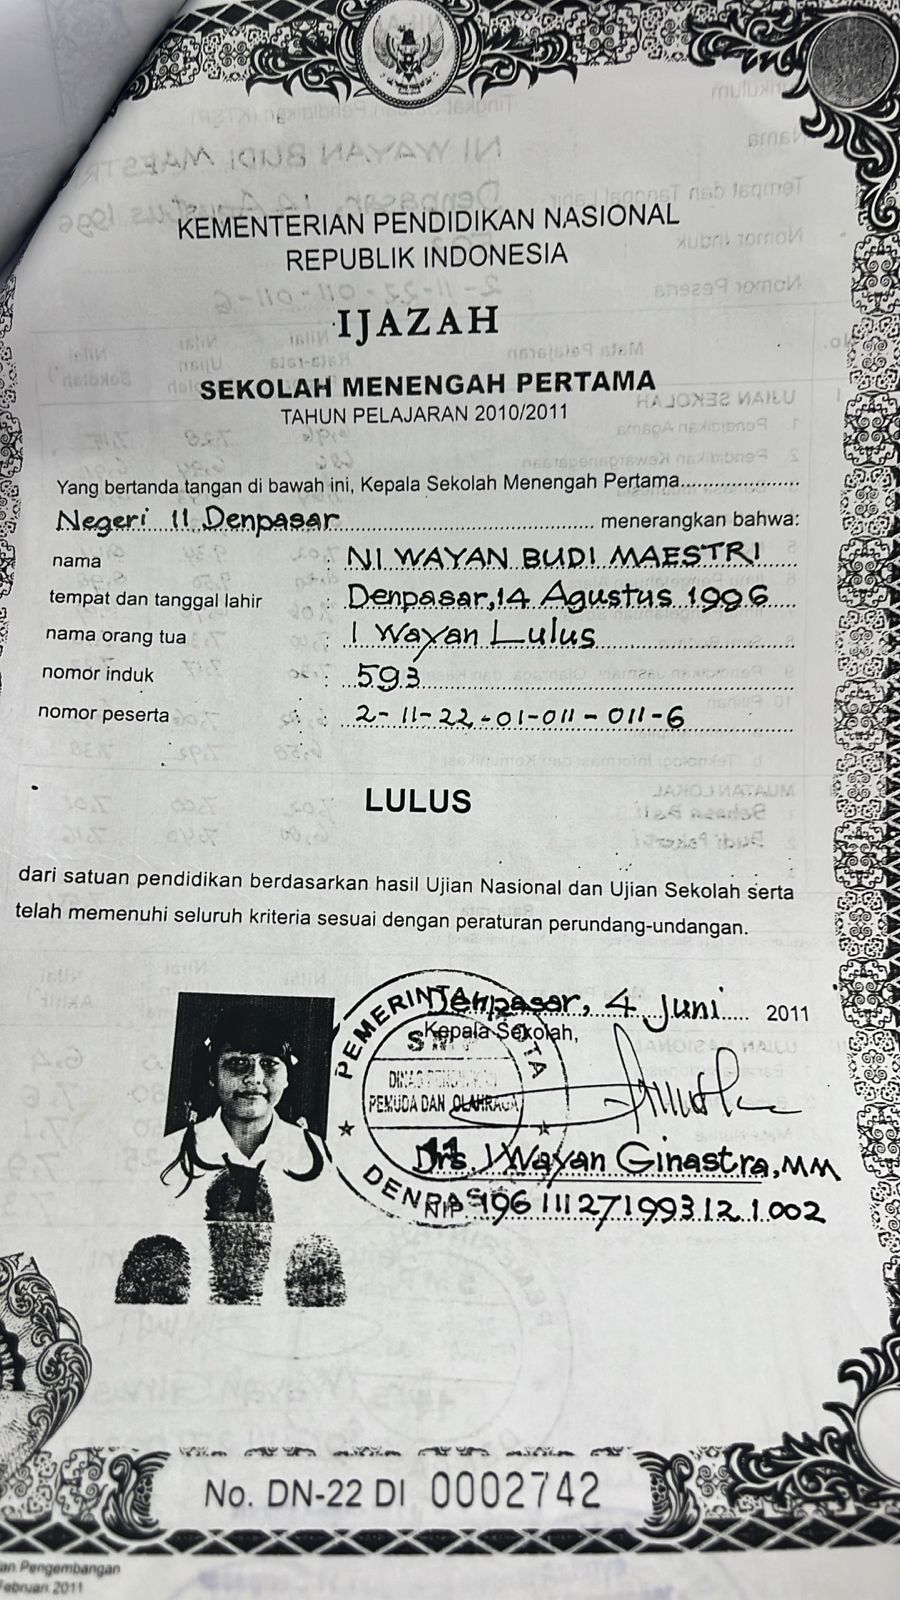 KEMENTERIAN PENDIDIKAN NASIONAL
REPUBLIK INDONESIA
IJAZAH
SEKOLAH MENENGAH PERTAMA
TAHUN PELAJARAN 2010/2011
Yang bertanda tangan di bawah ini, Kepala Sekolah Menengah Pertama
Negeri 11 Denpasar menerangkan bahwa:
nama : NI WAYAN BUDI MAESTRI
tempat dan tanggal lahir : Denpasar, 14 Agustus 1996
nama orang tua : I Wayan Lulus
nomor induk : 593
nomor peserta : 2-11-22-01-011-011-6
LULUS
dari satuan pendidikan berdasarkan hasil Ujian Nasional dan Ujian Sekolah serta
telah memenuhi seluruh kriteria sesuai dengan peraturan perundang-undangan.
Denpasar, 4 Juni 2011
Kepala Sekolah,
PEMUDA DAN OLAHRAGA
11
Drs. I Wayan Ginastra, MM
NIP 19611127 199312 1 002
No. DN-22 DI 0002742
an Pengembangan
Februari 2011